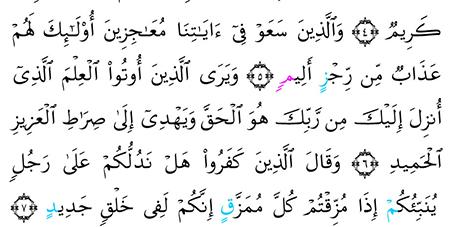 كَرِيمٌ ﴿٤﴾ وَٱلَّذِينَ سَعَوْ فِىٓ ءَايَٰتِنَا مُعَٰجِزِينَ أُو۟لَٰٓئِكَ لَهُمْ
عَذَابٌ مِّن رِّجْزٍ أَلِيمٍ ﴿٥﴾ وَيَرَى ٱلَّذِينَ أُوتُوا۟ ٱلْعِلْمَ ٱلَّذِىٓ
أُنزِلَ إِلَيْكَ مِن رَّبِّكَ هُوَ ٱلْحَقَّ وَيَهْدِىٓ إِلَىٰ صِرَٰطِ ٱلْعَزِيزِ
ٱلْحَمِيدِ ﴿٦﴾ وَقَالَ ٱلَّذِينَ كَفَرُوا۟ هَلْ نَدُلُّكُمْ عَلَىٰ رَجُلٍ
يُنَبِّئُكُمْ إِذَا مُزِّقْتُمْ كُلَّ مُمَزَّقٍ إِنَّكُمْ لَفِى خَلْقٍ جَدِيدٍ ﴿٧﴾